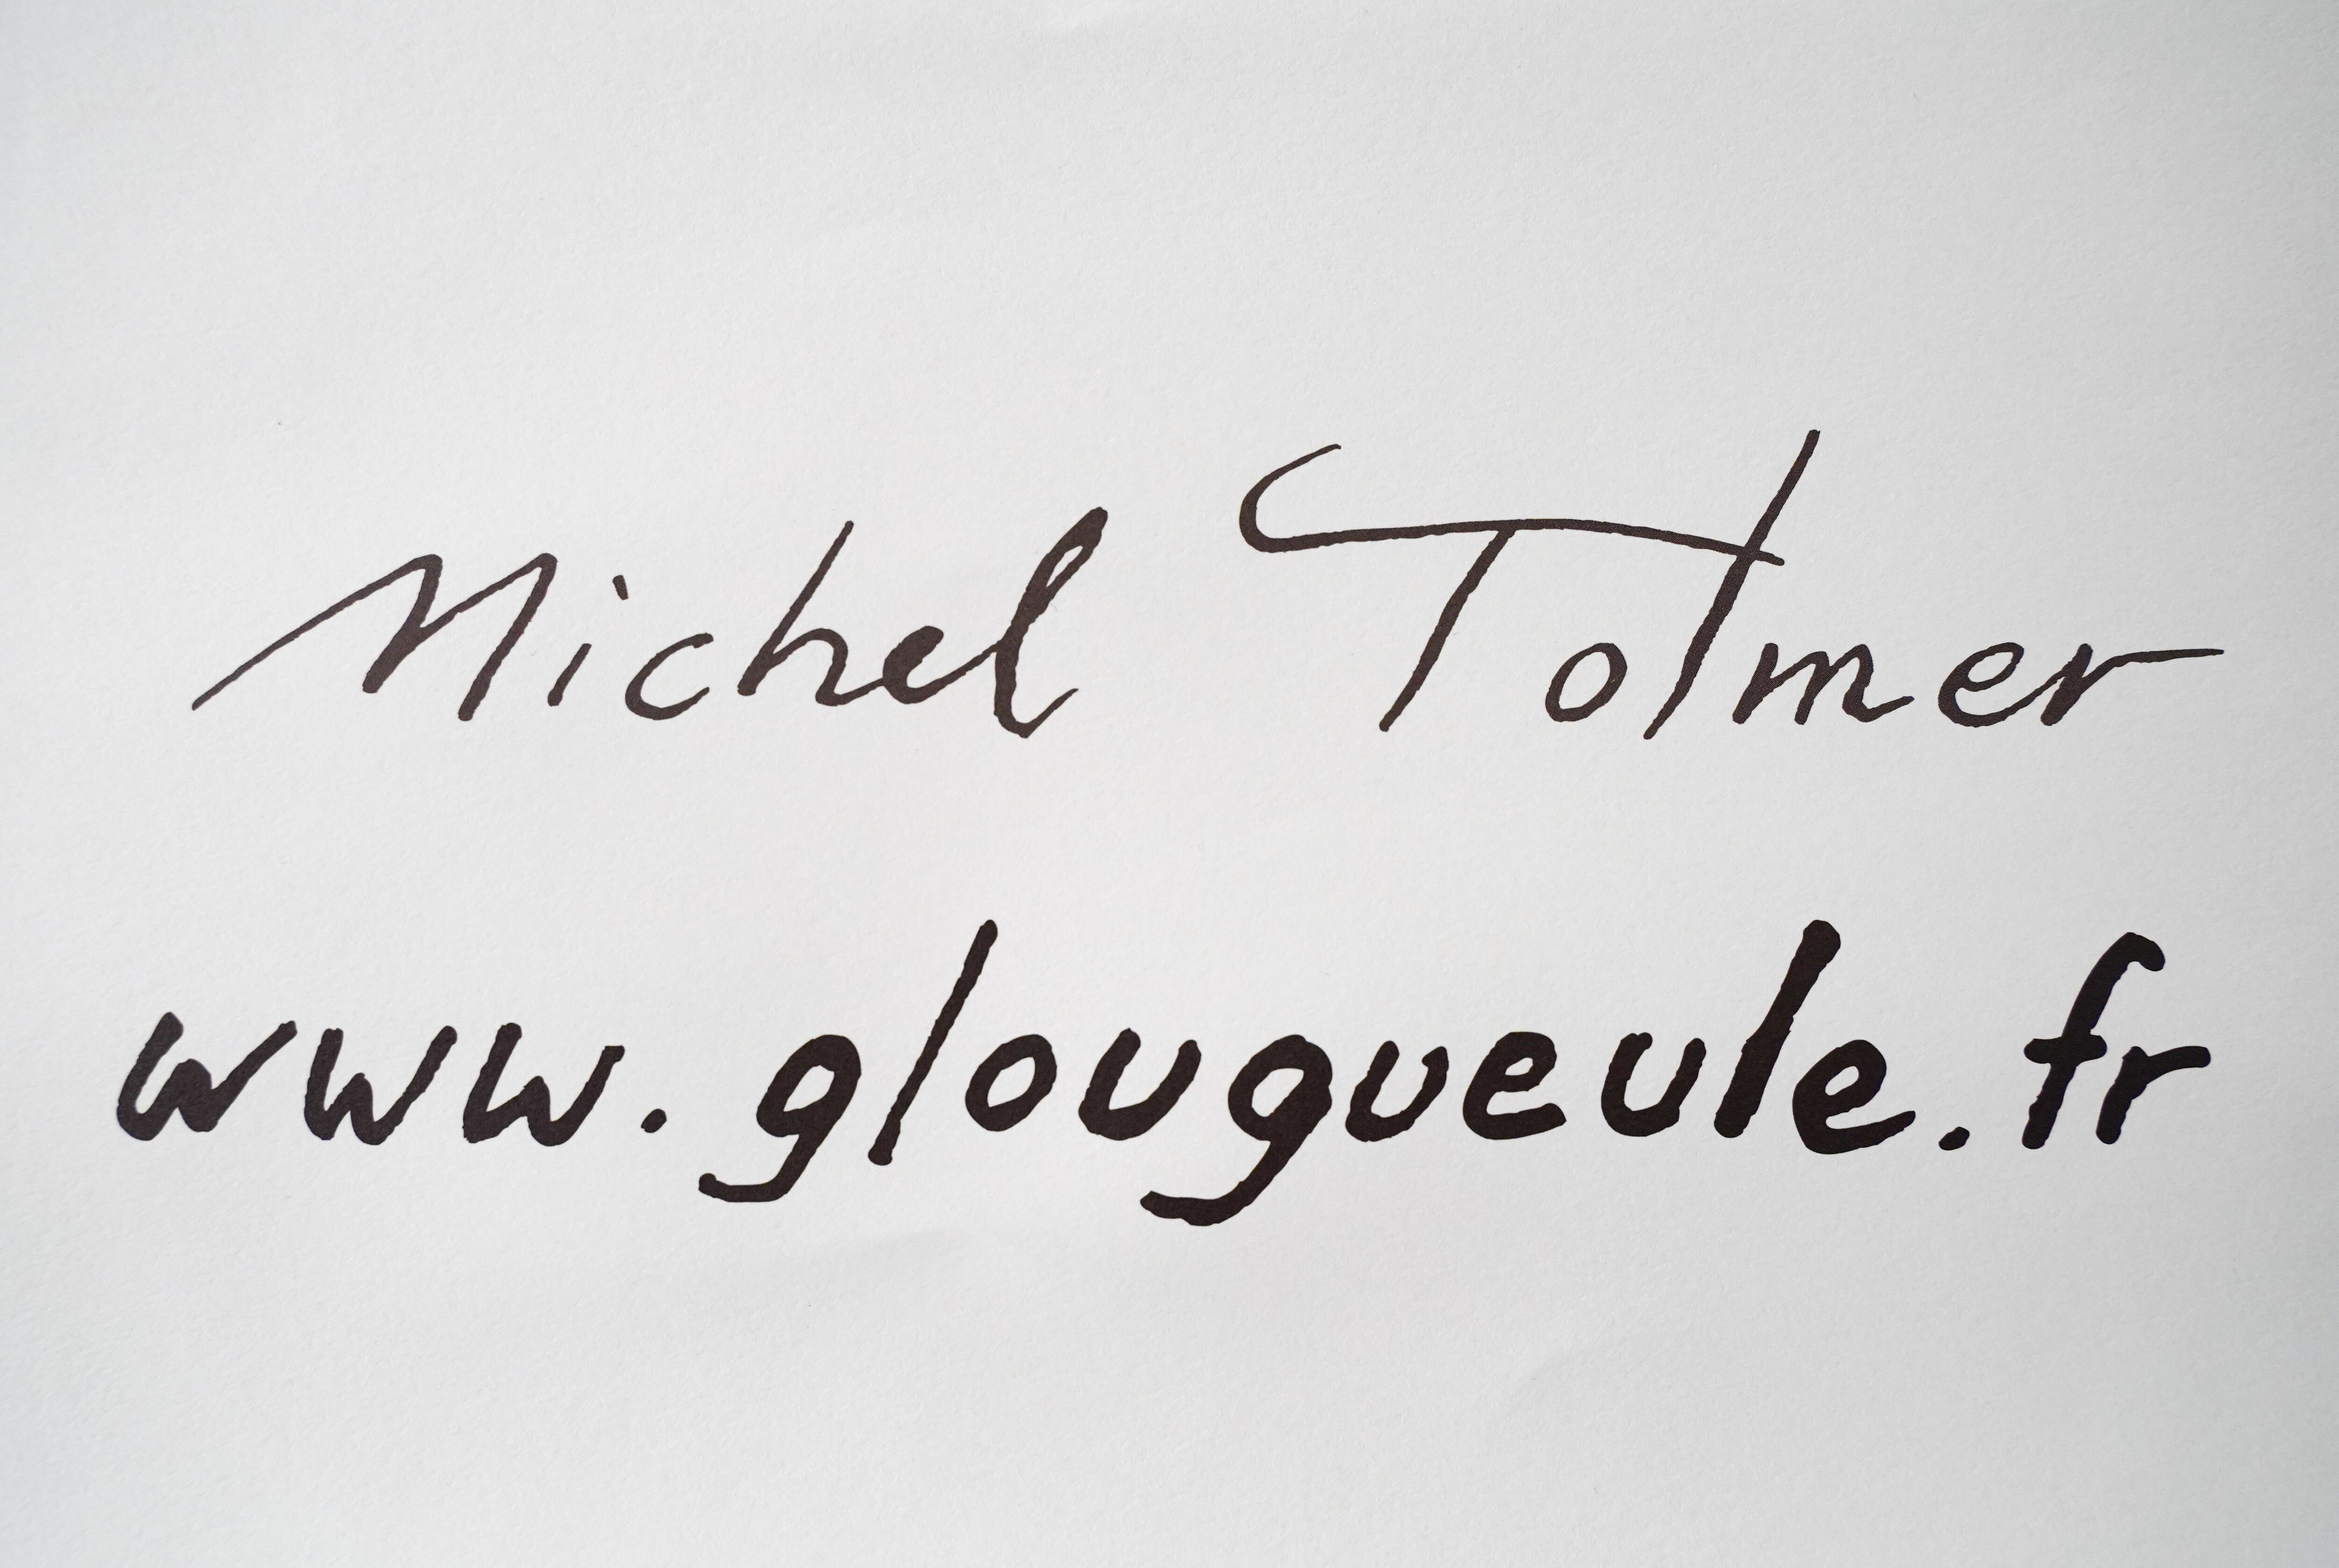 Michel Tolmer
www.glougueule.fr